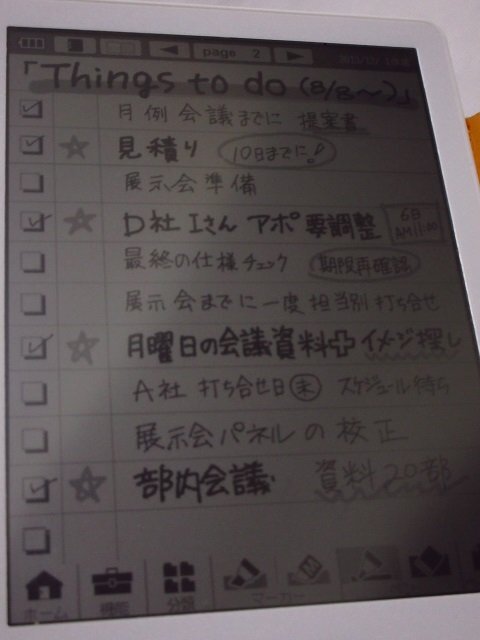 page 2
「Things to do (8/8〜)」
月例会議までに 提案書
見積り 10日までに!
展示会準備
D社 Iさん アポ 要調整 6日 AM11:00
最終の仕様チェック 期限再確認
展示会までに一度担当別打ち合せ
月曜日の会議資料+イメジ探し
A社 打ち合せ日(未) スケジュール待ち
展示会パネルの校正
部内会議 資料20部
ホーム 機能 分類 マーカー